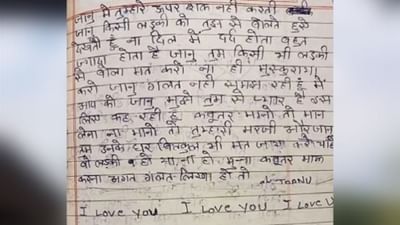 जानु मे तुम्हारे ऊपर शक नही करती
जानु किसी लड़की को तुझ से बोलते हुये
देखती हूँ ना दिल में दर्द होता बहुत
ज्यादा होता है जानु तुम किसी भी लड़की
से बोला मत करो ना ही मुस्कुराया
करो जानु गलत नही समझ रही हूँ में
आप को जानु मुझे तुम से प्यार है इस
लिए कह रही हूँ कबुतर मानो तो मान
लेना ना मानो तो तुम्हारी मरजी और जान
तुम उनके घुर बिलकुल भी मत जाया करो चाहे
वो लड़की हो या ना हो मुन्ना कबुतर माफ
करना अगत गलत लिखा हो तो
JAANU
I Love you I Love you I Love U